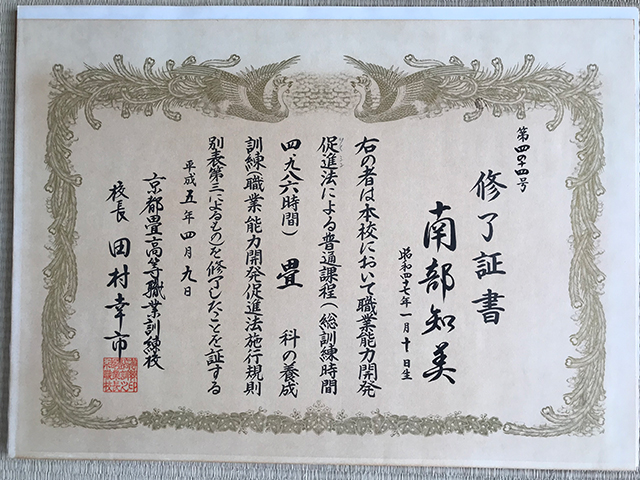 第四四号
修了証書
南部知美
昭和四十七年一月十日生
右の者は本校において職業能力開発
促進法による普通課程(総訓練時間
四、九八六時間)畳科の養成
訓練(職業能力開発促進法施行規則
別表第三によるもの)を修了したことを証する
平成五年四月九日
京都畳高等職業訓練校
校長 田村幸市